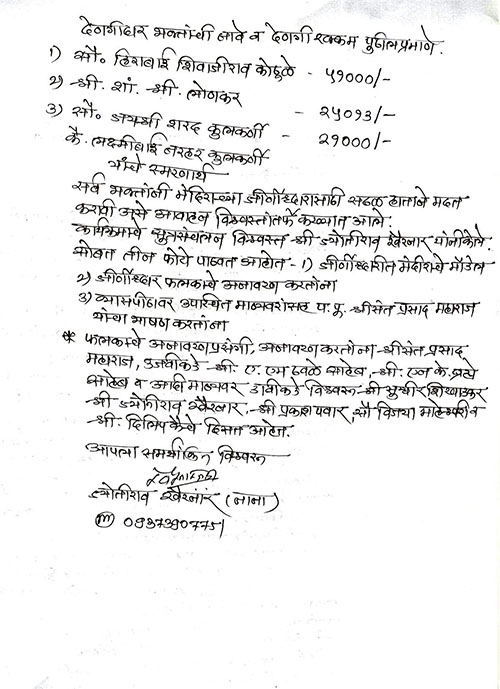 देणगीदार भक्तांची नावे व देणगी रक्कम पुढीलप्रमाणे.
१) सौ. हिराबाई शिवाजीराव कोद्रुळे - ५१०००/-
२) श्री. शां. भी. लोणकर - २५०१३/-
३) सौ. जयश्री शरद कुलकर्णी - २१०००/-
कै. लक्ष्मीबाई नरहर कुलकर्णी
यांचे स्मरणार्थ
सर्व भक्तांनी मंदिराच्या जीर्णोद्धारासाठी सढळ हाताने मदत
करावी असे आवाहन विश्वस्तांतर्फे करण्यात आले.
कार्यक्रमाचे सुत्रसंचलन विश्वस्त श्री ज्योतीराव खैरनार यांनी केले
सोबत तीन फोटो पाठवत आहोत - १) जीर्णोद्धारीत मंदीराचे मॉडेल
२) जीर्णोद्धार फलकाचे अनावरण करतांना
३) व्यासपीठावर उपस्थित मान्यवरांसह प. पू. श्रीसंत प्रसाद महाराज
यांचा भाषण करतांना
फलकाचे अनावरणप्रसंगी, अनावरण करतांना श्रीसंत प्रसाद
महाराज, उजवीकडे - श्री. ए. एम हवळे साहेब, श्री. एन के.
साहेब व आदी मान्यवर डावीकडे विश्वस्त श्री सुधीर शिरवाडकर
श्री ज्योतीराव खैरनार, श्री प्रकाश पवार, सौ विजया माहेश्वरीन
श्री. दिलिप कैचे दिसत आहेत.
आपला समर्थांकित विश्वस्त
ज्योतीराव खैरनार (नाना)
(m) 09373907751